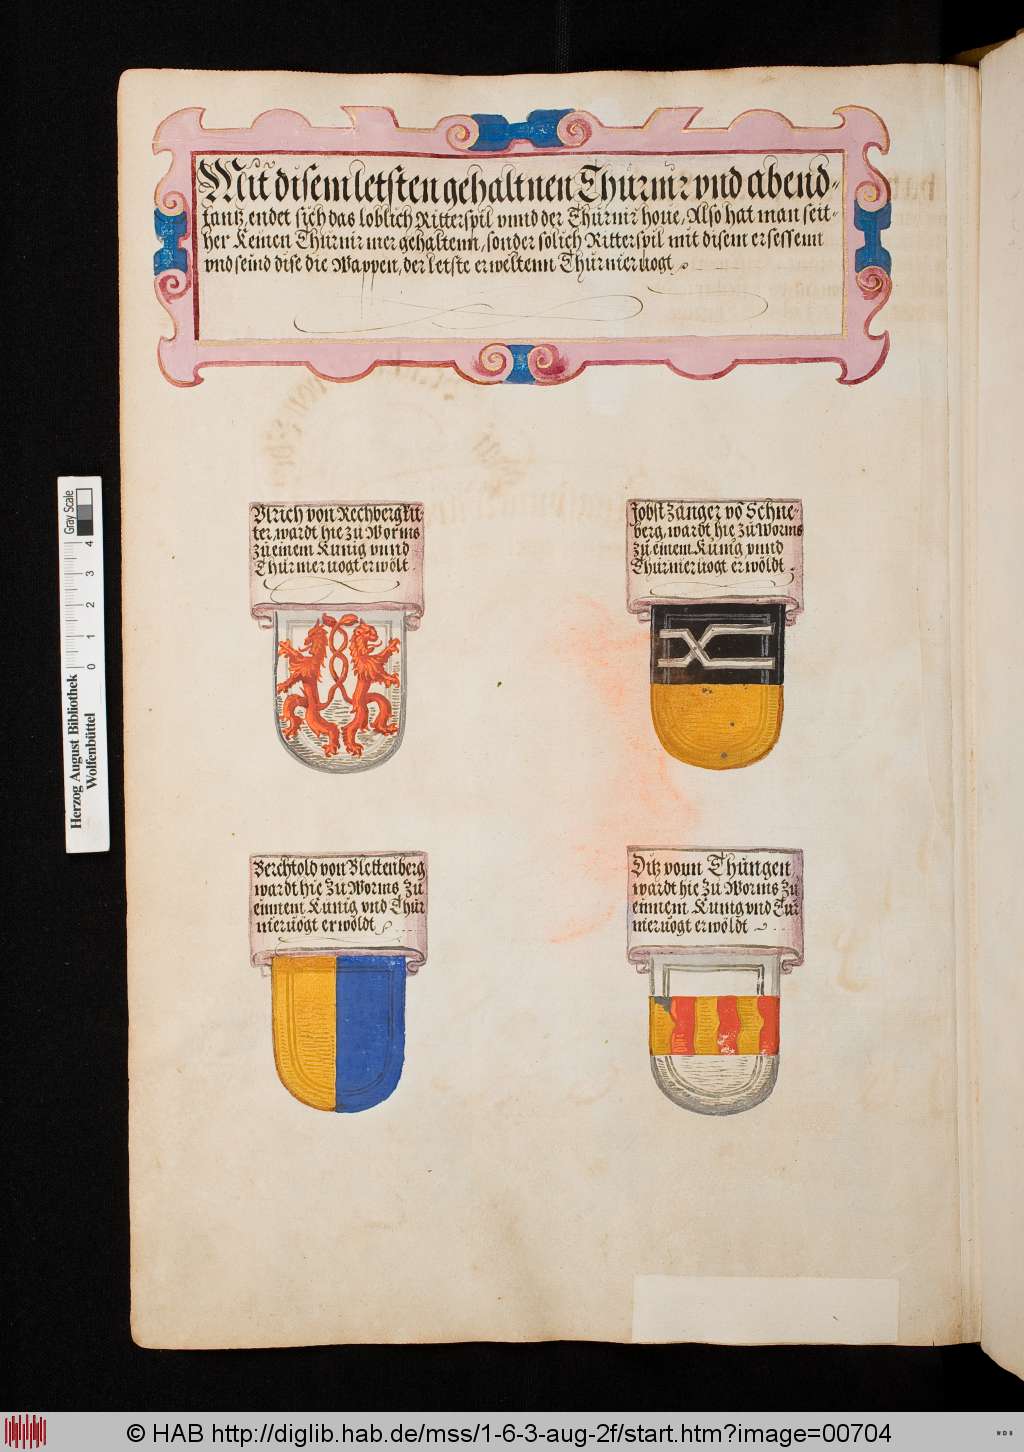 Mit disem letsten gehaltnen Thurnir vnd abend-
tantz endet sich das loblich Ritterspil vnnd der Thurnir houe, Also hat man seit-
her Keinen Thurnir mer gehaltenn, sonder solich Ritterspil mit disem ersessenn
vnd seind dise die Wappen, der letste erweltenn Thurnieruogt
Vlrich von Rechberg Rit-
ter, wardt hie zu Worms
zu einem Kunig vnnd
Thurnieruogt erwölt.
Jobst Zänger vō Schne-
berg, wardt hie zu Worms
zu einem Kunig vnnd
Thurnieruogt erwöldt.
Berchtold von Blettenberg
wardt hie zu Worms zu
einnem Kunig vnd Thur
nieruogt erwöldt
Ditz vonn Thungen
wardt hie zu Worms zu
einnem Kunig vnd Tur
nieruogt erwöldt
Gray Scale
0 1 2 3 4
Herzog August Bibliothek
Wolfenbüttel
© HAB http://diglib.hab.de/mss/1-6-3-aug-2f/start.htm?image=00704
WDB